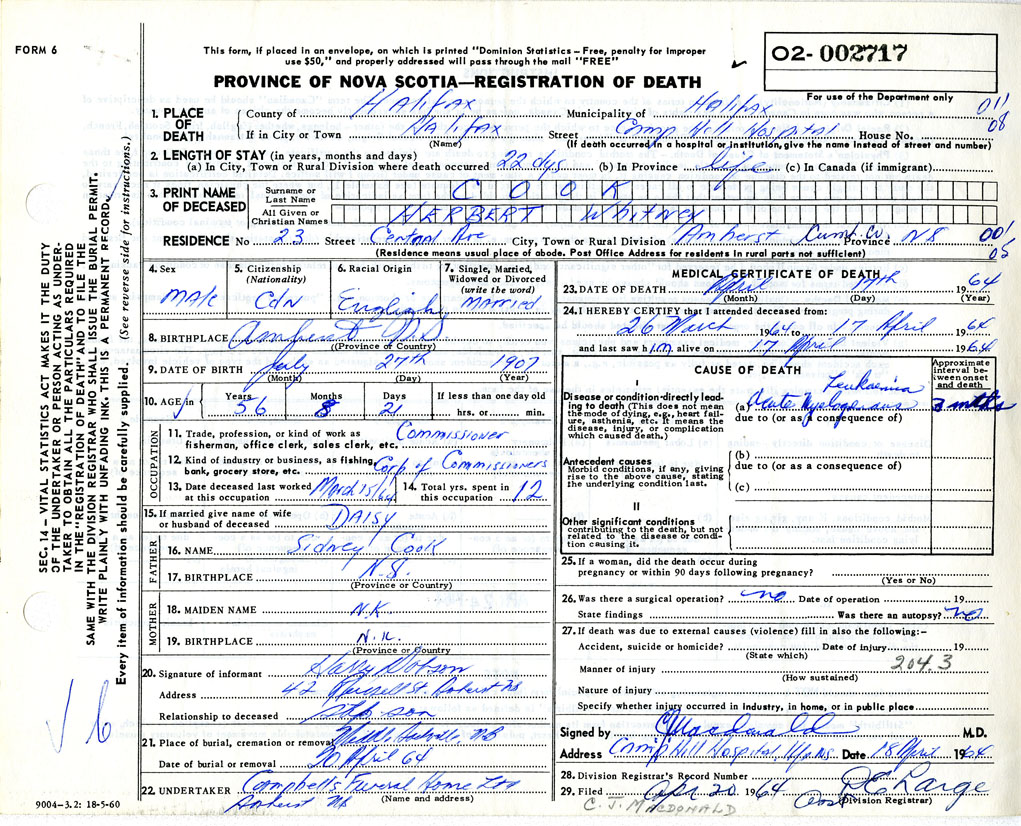 FORM 6
This form, if placed in an envelope, on which is printed "Dominion Statistics – Free, penalty for improper
use $50," and properly addressed will pass through the mail "FREE"
02-002717
PROVINCE OF NOVA SCOTIA—REGISTRATION OF DEATH
For use of the Department only
1. PLACE OF DEATH
County of Halifax Municipality of Halifax 011
If in City or Town Halifax Street Camp Hill Hospital House No. 08
(Name) (If death occurred in a hospital or institution, give the name instead of street and number)
2. LENGTH OF STAY (in years, months and days)
(a) In City, Town or Rural Division where death occurred 22 dys (b) In Province Life (c) In Canada (if immigrant)
3. PRINT NAME OF DECEASED
Surname or Last Name COOK
All Given or Christian Names HERBERT Whitney
RESIDENCE No 23 Street Central Ave City, Town or Rural Division Amherst Cum. Co. Province NS 001
(Residence means usual place of abode. Post Office Address for residents in rural parts not sufficient) 05
4. Sex Male
5. Citizenship (Nationality) Cdn
6. Racial Origin English
7. Single, Married, Widowed or Divorced (write the word) Married
8. BIRTHPLACE Amherst NS
(Province of Country)
9. DATE OF BIRTH July 27th 1907
(Month) (Day) (Year)
10. AGE Years 56 Months 8 Days 21 If less than one day old hrs. or min.
OCCUPATION
11. Trade, profession, or kind of work as fisherman, office clerk, sales clerk, etc. Commissioner
12. Kind of industry or business, as fishing, bank, grocery store, etc. Corp of Commissioners
13. Date deceased last worked at this occupation March 15/64
14. Total yrs. spent in this occupation 12
15. If married give name of wife or husband of deceased DAISY
FATHER
16. NAME Sidney Cook
17. BIRTHPLACE N.S.
(Province or Country)
MOTHER
18. MAIDEN NAME N.K
19. BIRTHPLACE N.K.
(Province or Country)
20. Signature of informant Harry
Address 42 Russell St. Amherst NS
Relationship to deceased step son
21. Place of burial, cremation or removal NB
Date of burial or removal 20 April 64
22. UNDERTAKER Campbells Funeral Home Ltd
Amherst NS (Name and address)
MEDICAL CERTIFICATE OF DEATH
23. DATE OF DEATH April 17th 1964
(Month) (Day) (Year)
24. I HEREBY CERTIFY that I attended deceased from:
26 March 1964 to 17 April 1964
and last saw him alive on 17 April 1964
CAUSE OF DEATH
Approximate interval between onset and death
I
Disease or condition directly leading to death (This does not mean the mode of dying, e.g., heart failure, asthenia, etc. It means the disease, injury, or complication which caused death.)
(a) Acute Myelogenous Leukaemia 3 mths
due to (or as a consequence of)
Antecedent causes
Morbid conditions, if any, giving rise to the above cause, stating the underlying condition last.
(b)
due to (or as a consequence of)
(c)
II
Other significant conditions
contributing to the death, but not related to the disease or condition causing it.
25. If a woman, did the death occur during
pregnancy or within 90 days following pregnancy?
(Yes or No)
26. Was there a surgical operation? no Date of operation 19
State findings Was there an autopsy? no
27. If death was due to external causes (violence) fill in also the following:–
Accident, suicide or homicide? Date of injury 19
(State which) 204.3
Manner of injury
(How sustained)
Nature of injury
Specify whether injury occurred in industry, in home, or in public place
Signed by C J Macdonald M.D.
Address Camp Hill Hospital, Hfx NS. Date 18 April 1964
28. Division Registrar's Record Number
29. Filed Apr 20 1964 Large
(Division Registrar)
C. J. MACDONALD
SEC. 14 – VITAL STATISTICS ACT MAKES IT THE DUTY
OF THE UNDERTAKER OR PERSON ACTING AS UNDER-
TAKER TO OBTAIN ALL THE PARTICULARS REQUIRED
IN THE "REGISTRATION OF DEATH" AND TO FILE THE
SAME WITH THE DIVISION REGISTRAR WHO SHALL ISSUE THE BURIAL PERMIT.
WRITE PLAINLY WITH UNFADING INK. THIS IS A PERMANENT RECORD.
Every item of information should be carefully supplied. (See reverse side for instructions.)
6
9004–3.2: 18-5-60